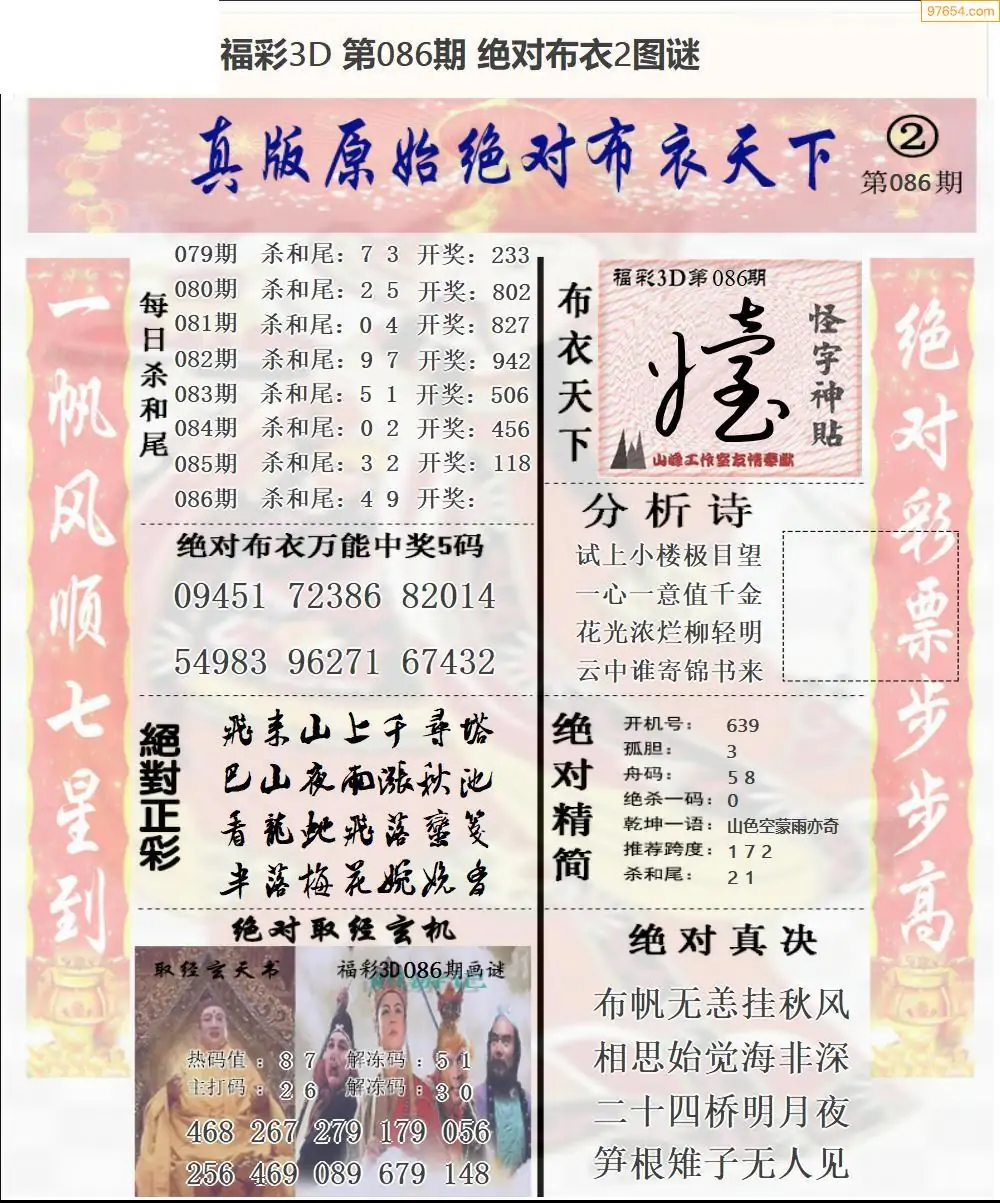 97654.com
福彩3D 第086期 绝对布衣2图谜
真版原始绝对布衣天下
②
第086期
一帆风顺七星到
每日杀和尾
079期 杀和尾：7 3 开奖：233
080期 杀和尾：2 5 开奖：802
081期 杀和尾：0 4 开奖：827
082期 杀和尾：9 7 开奖：942
083期 杀和尾：5 1 开奖：506
084期 杀和尾：0 2 开奖：456
085期 杀和尾：3 2 开奖：118
086期 杀和尾：4 9 开奖：
绝对布衣万能中奖5码
09451 72386 82014
54983 96271 67432
絕對正彩
飛来山上千尋塔
巴山夜雨漲秋池
看龍蛇飛落蠻箋
半落梅花婉娩香
绝对取经玄机
取经玄天书
福彩3D086期画谜
热码值：8 7 解冻码：5 1
主打码：2 6 解冻码：3 0
468 267 279 179 056
256 469 089 679 148
布衣天下
福彩3D第086期
怪字神貼
山峰工作室友情奉献
分析诗
试上小楼极目望
一心一意值千金
花光浓烂柳轻明
云中谁寄锦书来
绝对精简
开机号： 639
孤胆： 3
舟码： 5 8
绝杀一码：0
乾坤一语：山色空蒙雨亦奇
推荐跨度：1 7 2
杀和尾： 2 1
绝对真决
布帆无恙挂秋风
相思始觉海非深
二十四桥明月夜
笋根雉子无人见
绝对彩票步步高